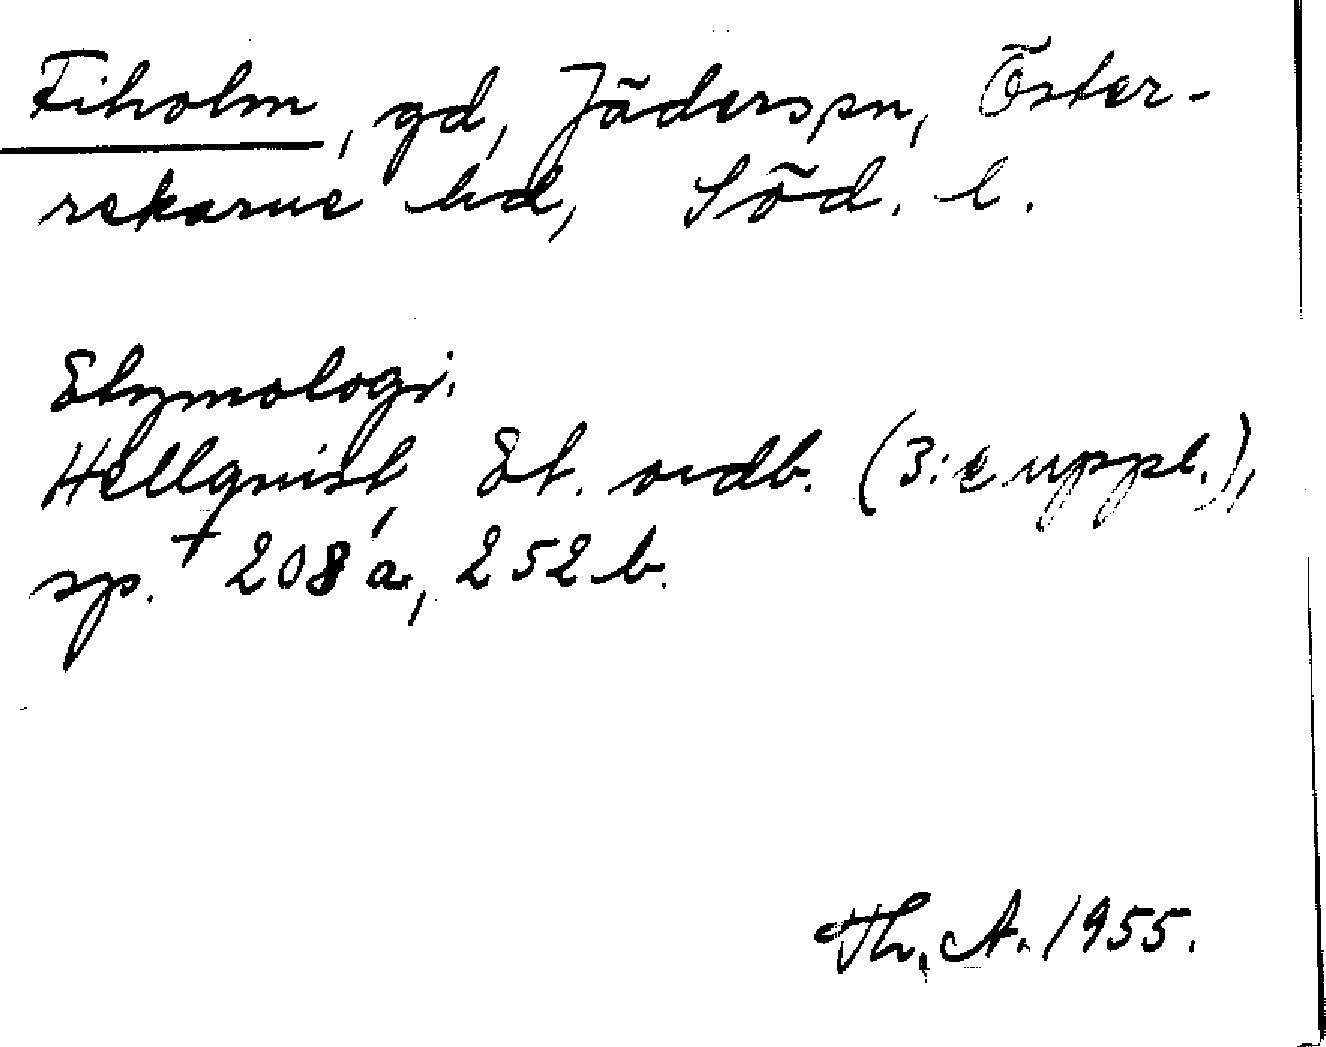 Fiholm, gd, Jäderspn, Öster-
rekarne hd, Söd. l.
Etymologi.
Hellquist, Et. ordb. (3:e uppl.),
sp. † 208 a, 252 b.
Th. A. 1955.